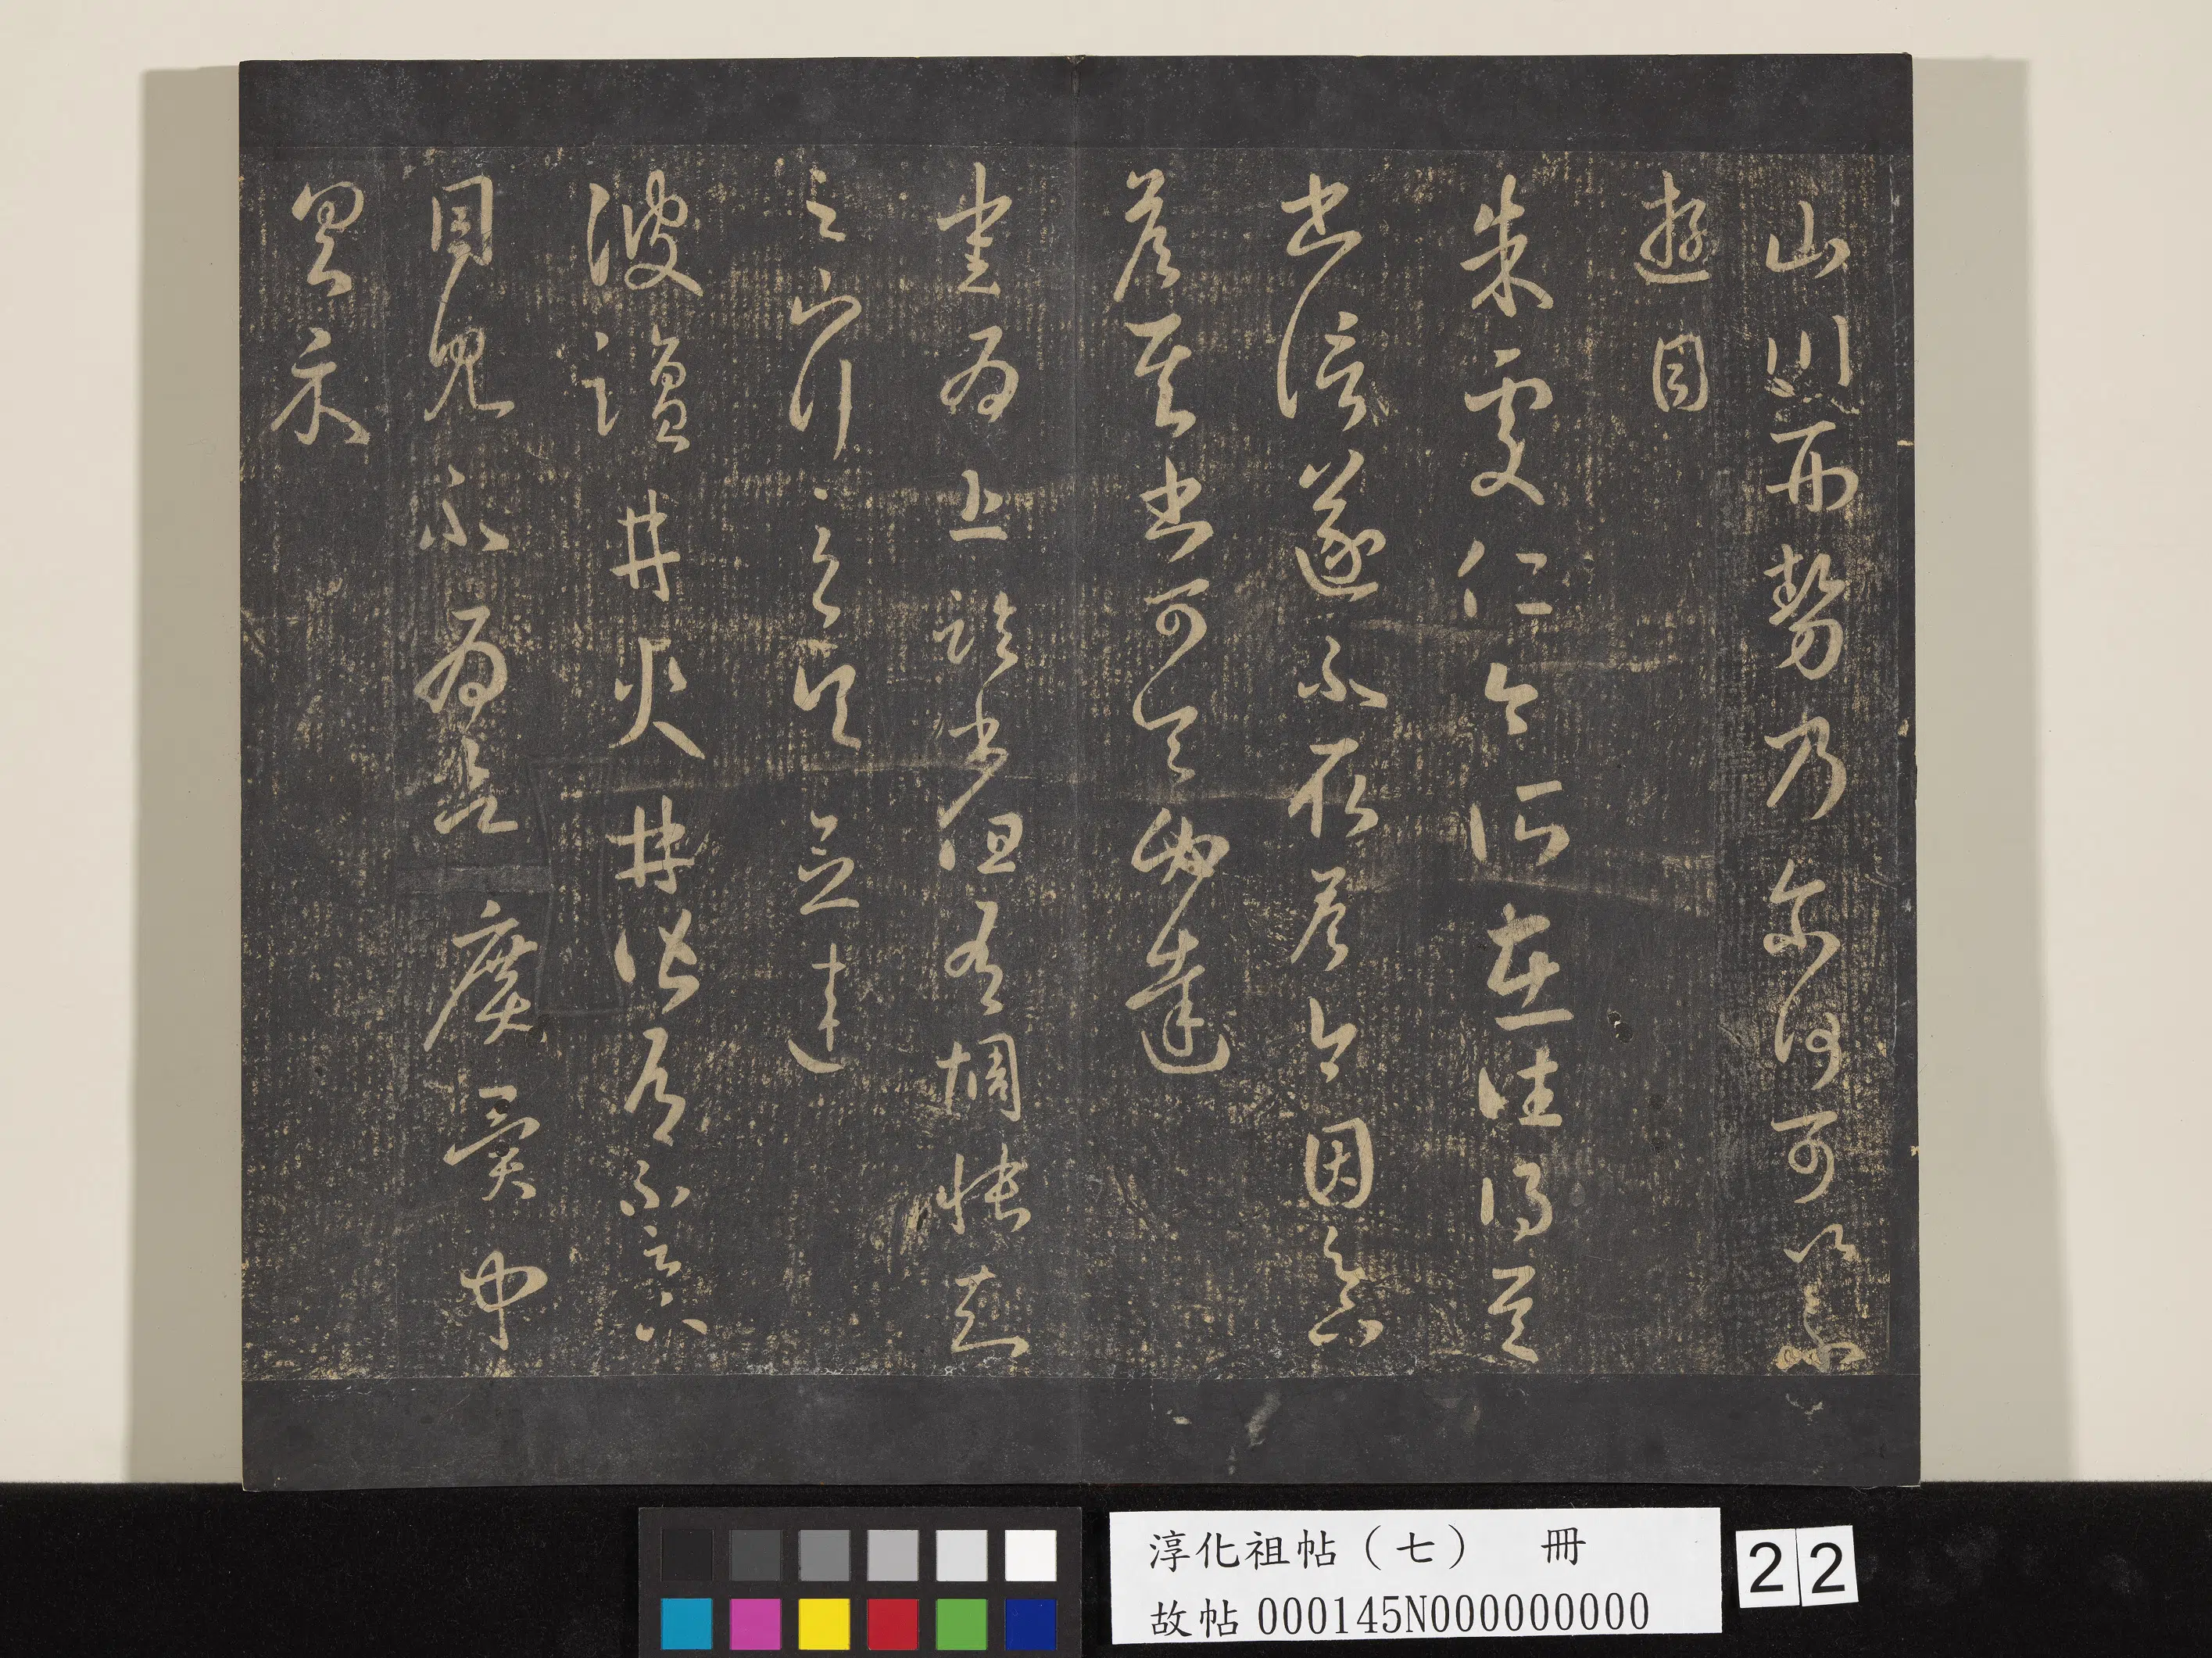 山川形勢乃爾何可以不
遊目
朱處仁今所在往得其
書信遂不取答今因足
下答其書可令必達
愛為上臨書但有惆悵知
足下行至吳念違
彼鹽井火井皆有不足下
目見不為欲廣異聞
具示
淳化祖帖（七） 冊
故帖000145N000000000
22